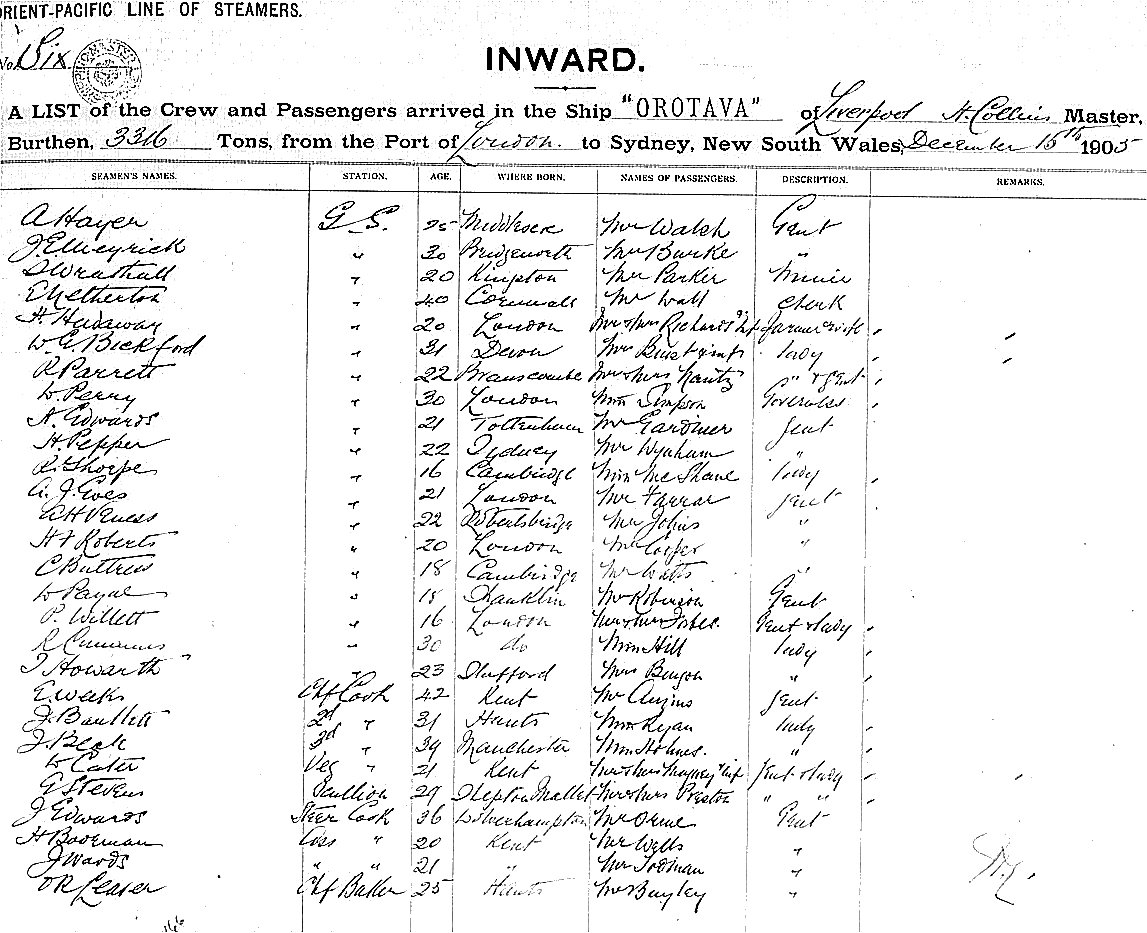 ORIENT-PACIFIC LINE OF STEAMERS.
No. Six
INWARD.
A LIST of the Crew and Passengers arrived in the Ship "OROTAVA" of Liverpool H. Collins Master,
Burthen, 3316 Tons, from the Port of London to Sydney, New South Wales, December 15th 1905
SEAMEN'S NAMES. STATION. AGE. WHERE BORN. NAMES OF PASSENGERS. DESCRIPTION. REMARKS.
A Hayer G.S. 25 Middlesex Mr Walsh Gent
J. E. Meyrick " 30 Bridgenorth Mr Burke "
" 20 Kington Mr Parker
E Netherton " 40 Cornwall Mr Wall Clerk
H. " 20 London Mr & Mrs Richards
W. G. Bickford " 31 Devon Mrs lady
R Parrett " 22 Branscombe Mr & Mrs " & Gent
W Perry " 30 London Miss Simpson Governess
A. Edwards " 21 Tottenham Mr Gardiner Gent
H. Pepper " 22 Sydney Mr Wynham "
R. Thorpe " 16 Cambridge Miss McShane lady
A. J. " 21 London Mr Farrar Gent
A H Veness " 22 Robertsbridge Mr Johns "
H F Roberts " 20 London Mr Cooper "
C Buttress " 18 Cambridge Mr Watts "
W Payne " 18 Franklin Mr Robinson Gent
P. Willett " 16 London Mr & Mrs Gent & lady
R Cummins " 30 do Miss Hill lady
T Howarth " 23 Stafford Mrs "
E. Weeks Chf Cook 42 Kent Mr Gent
J. Bartlett 2d " 31 Hants Miss Ryan lady
J. Beck 3d " 39 Manchester Miss Holmes. "
W Cater Veg " 21 Kent Mr & Mrs Inf Gent & lady
G Stevens Scullion 29 Shepton Mallet Mr & Mrs Preston " "
J Edwards Steer Cook 36 Wolverhampton Mr Orme Gent
H Booeman " 20 Kent Mr Wells "
J Woods " " 21 " Mr Todman "
Chf Baker 25 Hants Mr Bayley "